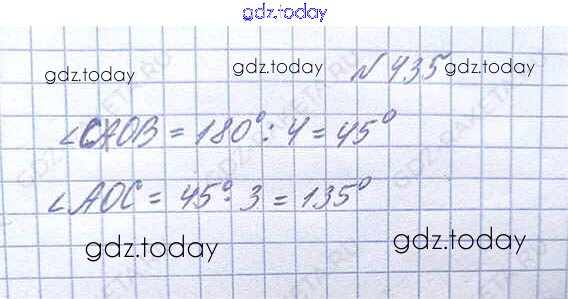 gdz.today
gdz.today gdz.today №435 gdz.today
∠CAOB = 180° : 4 = 45°
∠AOC = 45° · 3 = 135°
gdz.today gdz.today